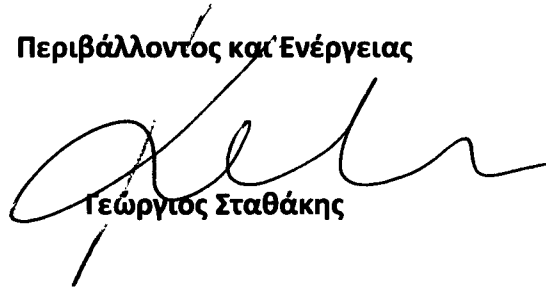 Περιβάλλοντος και Ενέργειας
Γεώργιος Σταθάκης